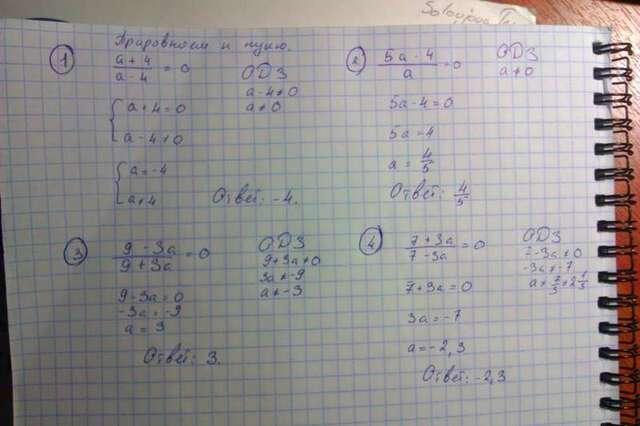 Приравняем к нулю.
1
a + 4 / a - 4 = 0
ОДЗ
a - 4 ≠ 0
a ≠ 0
{ a + 4 = 0
a - 4 ≠ 0
{ a = -4
a ≠ 4
Ответ: -4.
2
5a - 4 / a = 0
ОДЗ
a ≠ 0
5a - 4 = 0
5a = 4
a = 4/5
Ответ: 4/5
3
9 - 3a / 9 + 3a = 0
ОДЗ
9 + 3a ≠ 0
3a ≠ -9
a ≠ -3
9 - 3a = 0
-3a = -9
a = 3
Ответ: 3.
4
7 + 3a / 7 - 3a = 0
ОДЗ
7 - 3a ≠ 0
-3a ≠ -7
a ≠ 7/3 ≠ 2 1/3
7 + 3a = 0
3a = -7
a = -2,3
Ответ: -2,3